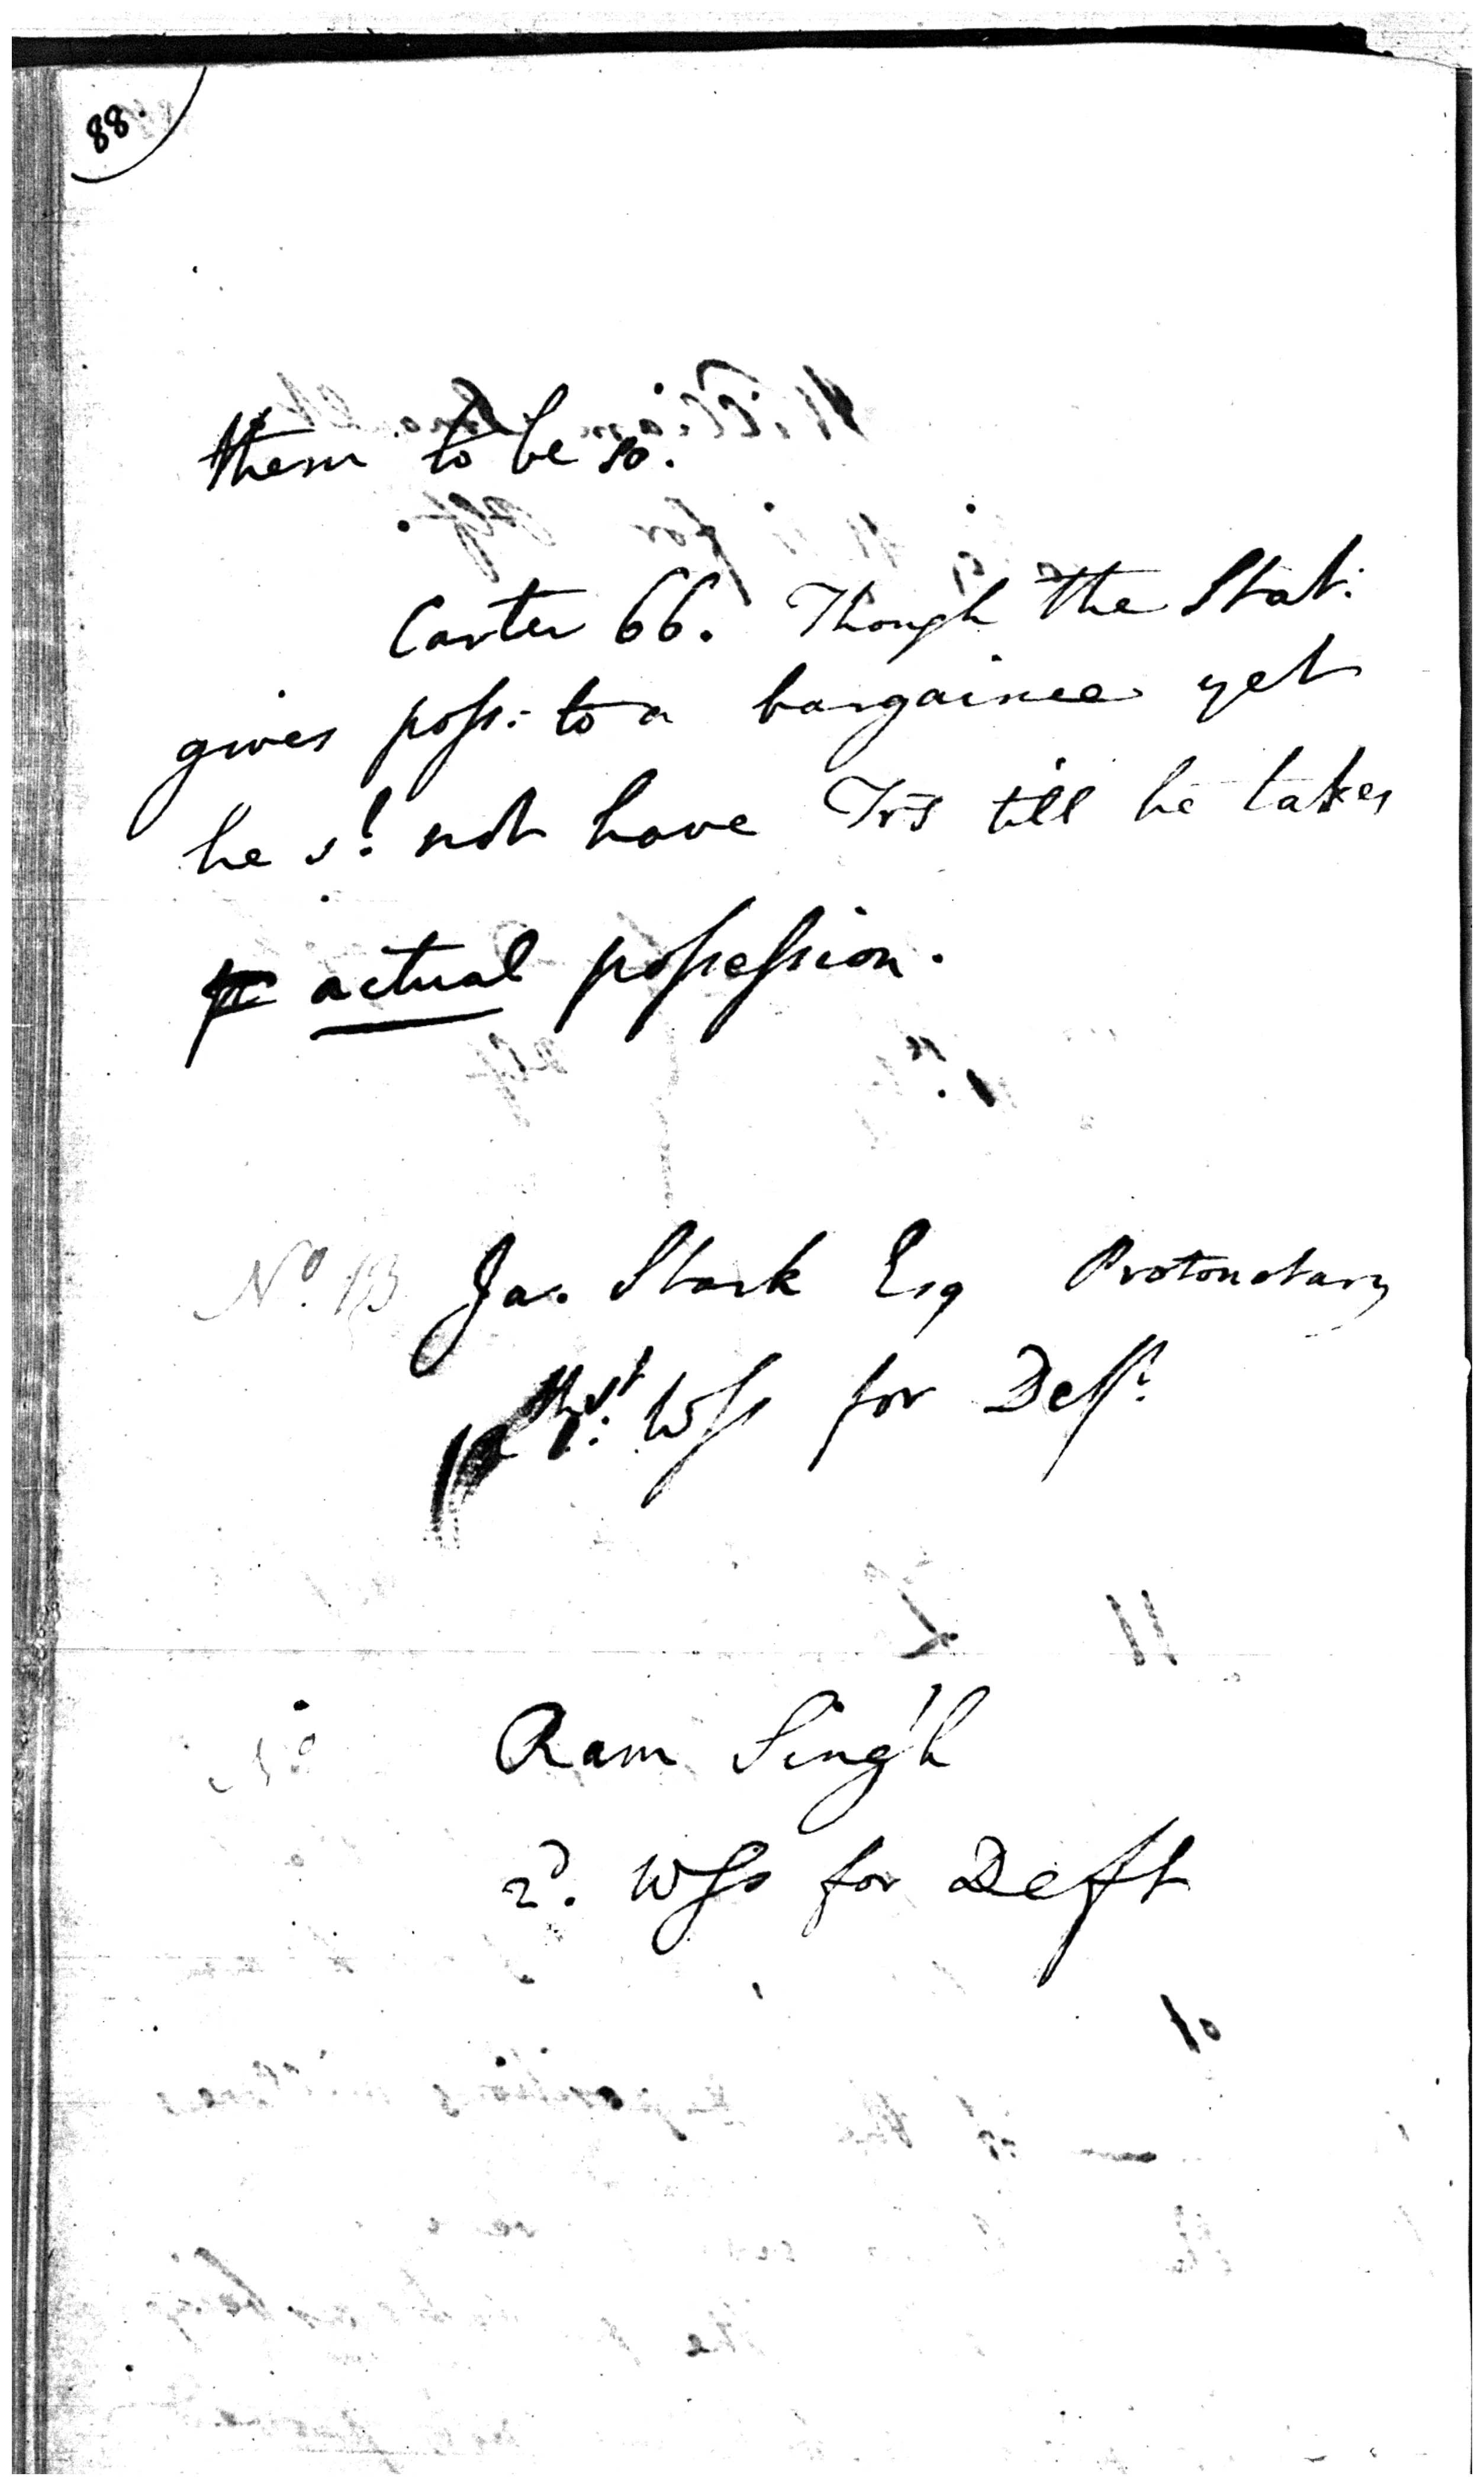 88.
them to be so.
Carter 66. Though the Stat:
gives poss: to a bargainee yet
he sd. not have Trs till he takes
actual possession.
No. 13 Jas. Stark Esq Protonotary
1st: Wss for Deft.
Ram Singh
2d. Wss for Deft